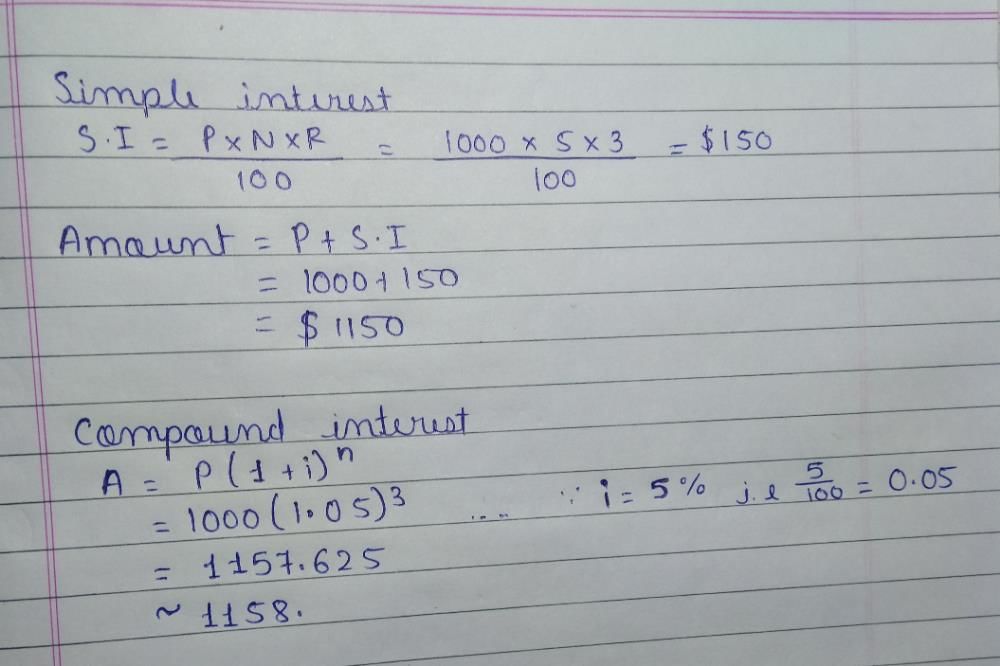 Simple interest
S.I = P x N x R / 100 = 1000 x 5 x 3 / 100 = $150
Amount = P + S.I
= 1000 + 150
= $1150
Compound interest
A = P(1+i)^n
= 1000(1.05)^3 .... ∵ i = 5% i.e 5/100 = 0.05
= 1157.625
~ 1158.